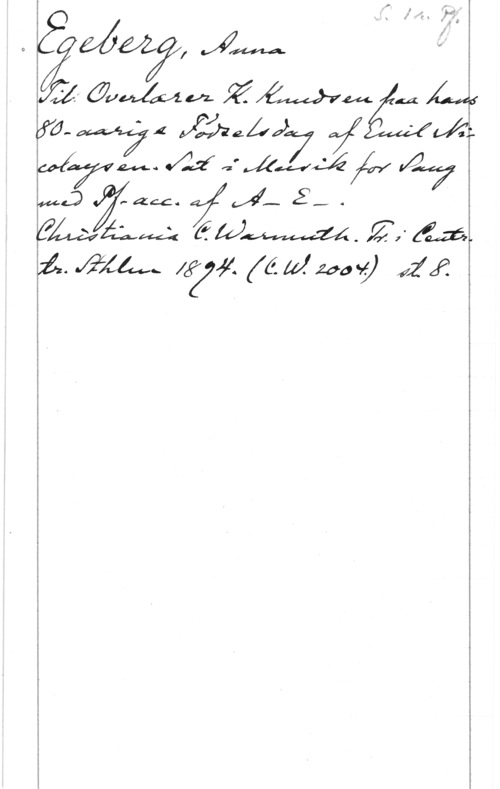 S. 1 st. Pf.
Egeberg, Anna
Til Overlærer K. Knudsen paa hans
80-aarige Födselsdag af Emil Ni=
colaysen. Sat i Musik for Sang
med Pf-acc. af A— E— .
Christiania C. Warmuth. Tr. i Centr.
tr. Sthlm 1894. (C.W. 2004.) st. 8.